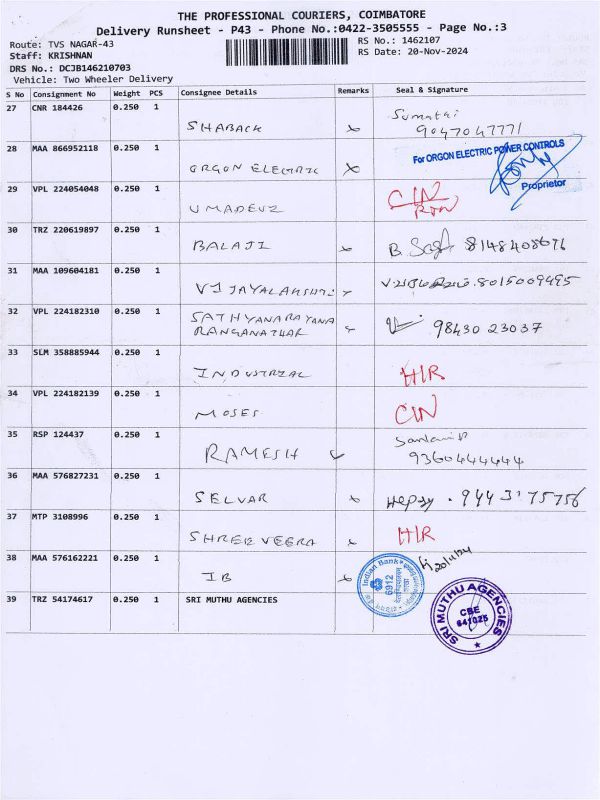 THE PROFESSIONAL COURIERS, COIMBATORE
Delivery Runsheet - P43 - Phone No.:0422-3505555 - Page No.:3
Route: TVS NAGAR-43 RS No.: 1462107
Staff: KRISHNAN RS Date: 20-Nov-2024
DRS No.: DCJB146210703
Vehicle: Two Wheeler Delivery
S No Consignment No Weight PCS Consignee Details Remarks Seal & Signature
27 CNR 184426 0.250 1 Sumathi
SHABACK 9047047771
28 MAA 866952118 0.250 1 For ORGON ELECTRIC POWER CONTROLS
ORGON ELECTRIC
Proprietor
29 VPL 224054048 0.250 1 CIN
UMADEVI
30 TRZ 220619897 0.250 1
BALAJI B. 8148408676
31 MAA 109604181 0.250 1
VIJAYALAKSHMI 8015009495
32 VPL 224182310 0.250 1
SATHYANARAYANA
RANGANATHAR 98430 23037
33 SLM 358885944 0.250 1
INDUSTRIAL HIR
34 VPL 224182139 0.250 1
MOSES CIN
35 RSP 124437 0.250 1
RAMESH 9360444444
36 MAA 576827231 0.250 1
SELVAR 94431 75756
37 MTP 3108996 0.250 1
SHREE VEERA HIR
38 MAA 576162221 0.250 1
IB Indian Bank 6912 20/11/24
39 TRZ 54174617 0.250 1 SRI MUTHU AGENCIES
SRI MUTHU AGENCIES
CBE
641025